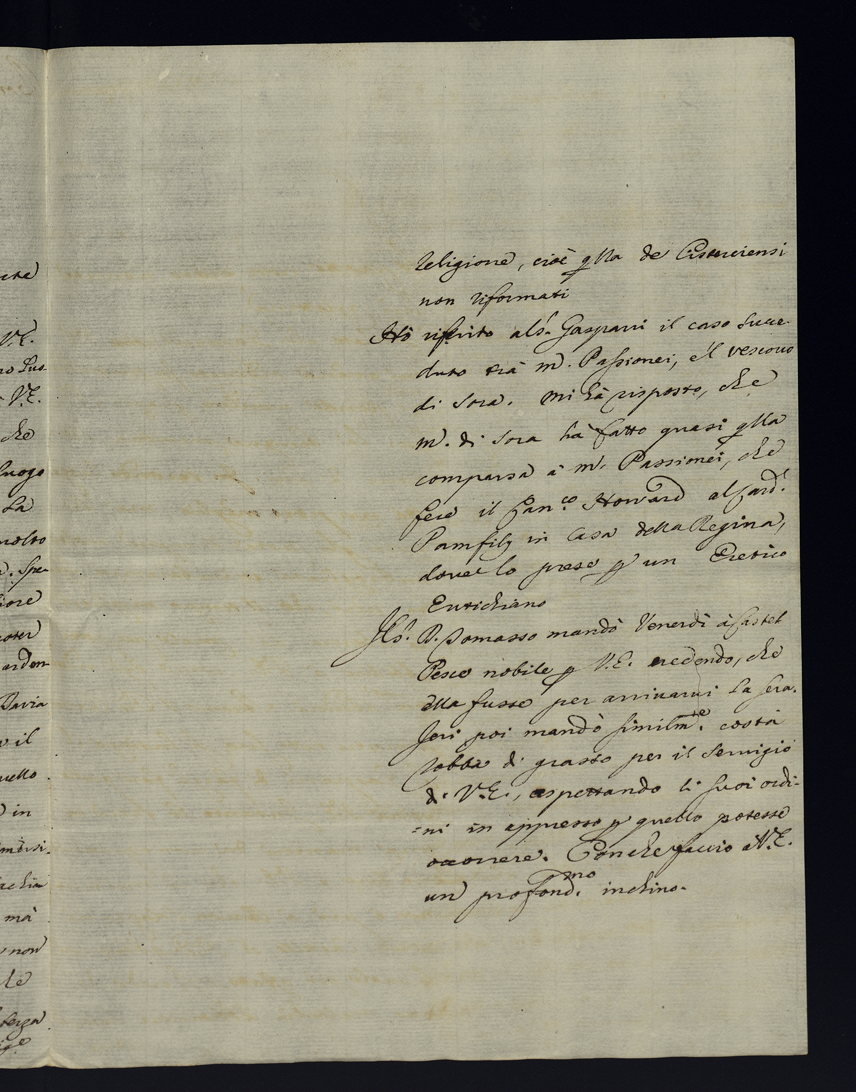 religione, cioè qlla de Cisterciensi
non riformati
Hò riferito al s.r Gasparri il caso succe
duto trà m.r Passionei, e 'l vescovo
di Sora. mi hà risposto, che
m.r di Sora hà fatto quasi qlla
comparsa à m.r Passionei, che
fece il Can.co Howard al Card.l
Pamfilj in casa della Regina,
dove lo prese p un Eretico
Eutichiano
Il s.r D. Tomasso mandò Venerdì à Castel
Pesce nobile p V.E. credendo, che
ella fusse per arrivarvi la sera.
Jeri poi mandò similm.te costà
robba di grasso per il servigio
di V.E., aspettando li suoi ordi-
=ni in appresso p quello potesse
occorrere. Con che faccio à V.E.
un profond.mo inchino.